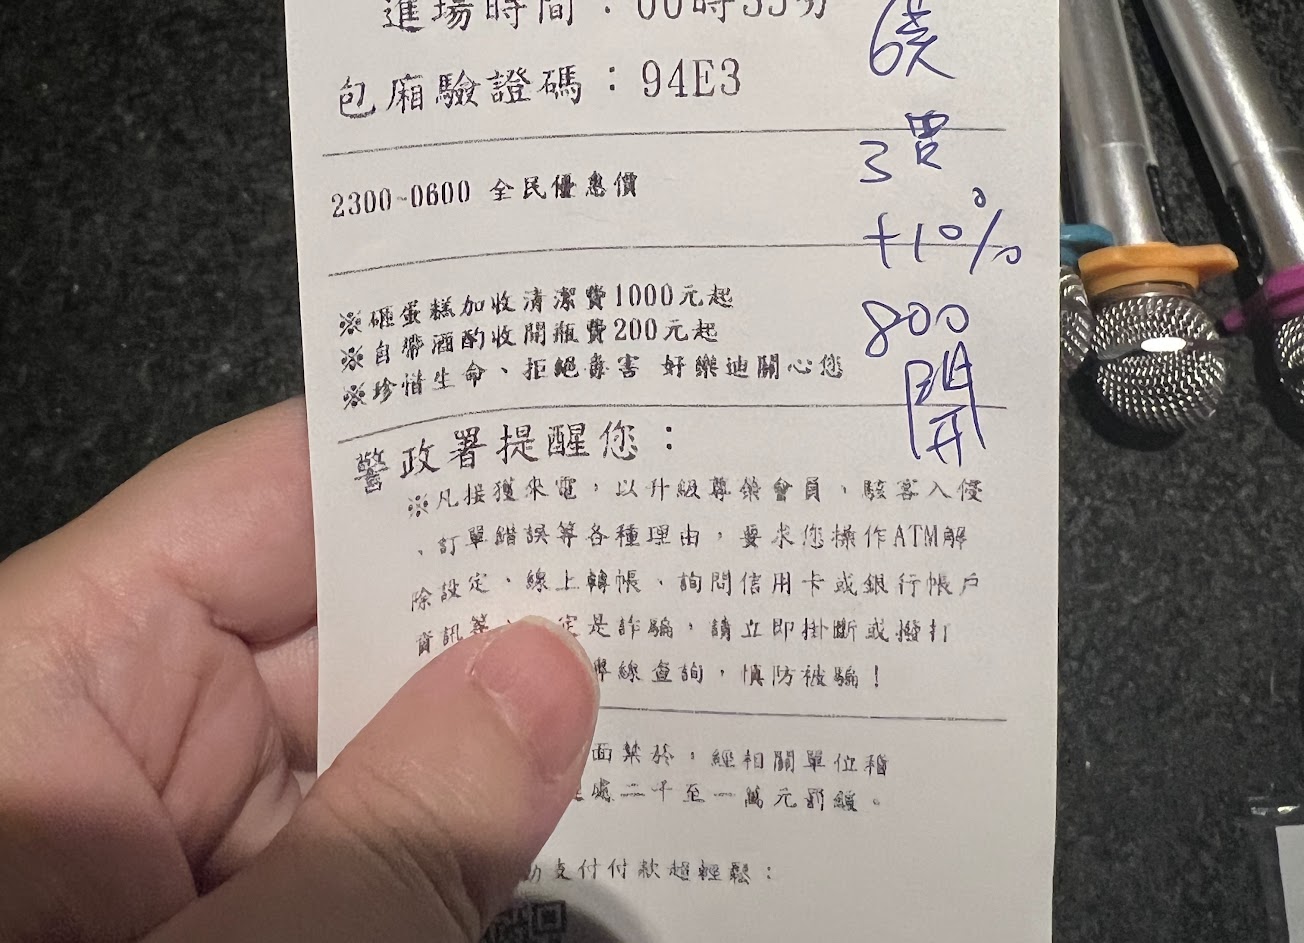 進場時間：00時55分
包廂驗證碼：94E3
2300~0600 全民優惠價
※砸蛋糕加收清潔費1000元起
※自帶酒酌收開瓶費200元起
※珍惜生命、拒絕毒害 好樂迪關心您
警政署提醒您：
※凡接獲來電，以升級尊榮會員、駭客入侵
、訂單錯誤等各種理由，要求您操作ATM解
除設定、線上轉帳、詢問信用卡或銀行帳戶
資訊等、定是詐騙，請立即掛斷或撥打
線查詢，慎防被騙！
面禁菸，經相關單位稽
處二千至一萬元罰鍰。
支付付款超輕鬆：
6
3
+10%
800
開